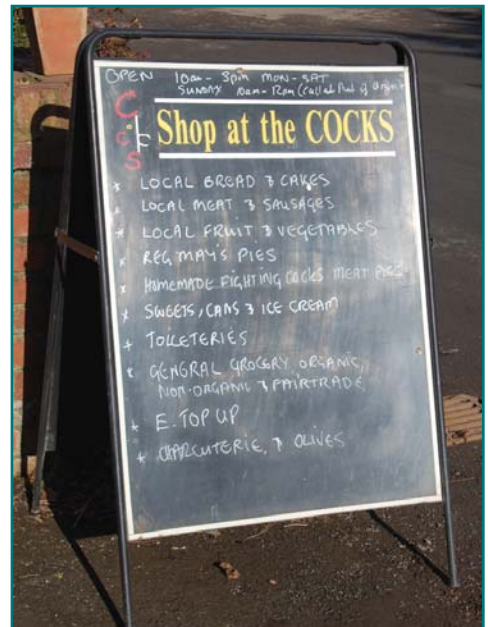 OPEN 10am - 8pm MON - SAT
SUNDAY 10am - 12pm (
COFFEE
Shop at the COCKS
* LOCAL BREAD & CAKES
* LOCAL MEAT & SAUSAGES
* LOCAL FRUIT & VEGETABLES
* REG MAY'S PIES
* HOMEMADE FIGHTING COCKS MEAT PIES
* SWEETS, CANS & ICE CREAM
* TOILETERIES
* GENERAL GROCERY, ORGANIC,
NON-ORGANIC & FAIRTRADE
* E. TOP UP
* CHARCUTERIE, & OLIVES